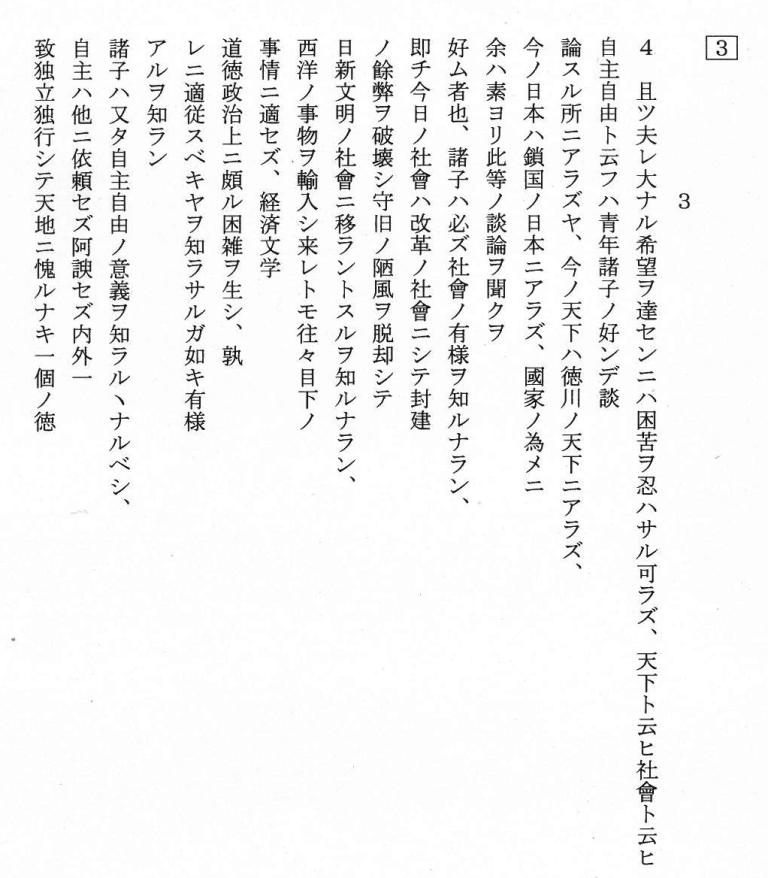 3
3
4　且ツ夫レ大ナル希望ヲ達センニハ困苦ヲ忍ハサル可ラズ、天下ト云ヒ社會ト云ヒ
自主自由ト云フハ青年諸子ノ好ンデ談
論スル所ニアラズヤ、今ノ天下ハ徳川ノ天下ニアラズ、
今ノ日本ハ鎖国ノ日本ニアラズ、國家ノ為メニ
余ハ素ヨリ此等ノ談論ヲ聞クヲ
好ム者也、諸子ハ必ズ社會ノ有様ヲ知ルナラン、
即チ今日ノ社會ハ改革ノ社會ニシテ封建
ノ餘弊ヲ破壊シ守旧ノ陋風ヲ脱却シテ
日新文明ノ社會ニ移ラントスルヲ知ルナラン、
西洋ノ事物ヲ輸入シ来レトモ往々目下ノ
事情ニ適セズ、経済文学
道徳政治上ニ頗ル困雑ヲ生シ、孰
レニ適従スベキヤヲ知ラサルガ如キ有様
アルヲ知ラン
諸子ハ又タ自主自由ノ意義ヲ知ラルヽナルベシ、
自主ハ他ニ依頼セズ阿諛セズ内外一
致独立独行シテ天地ニ愧ルナキ一個ノ徳